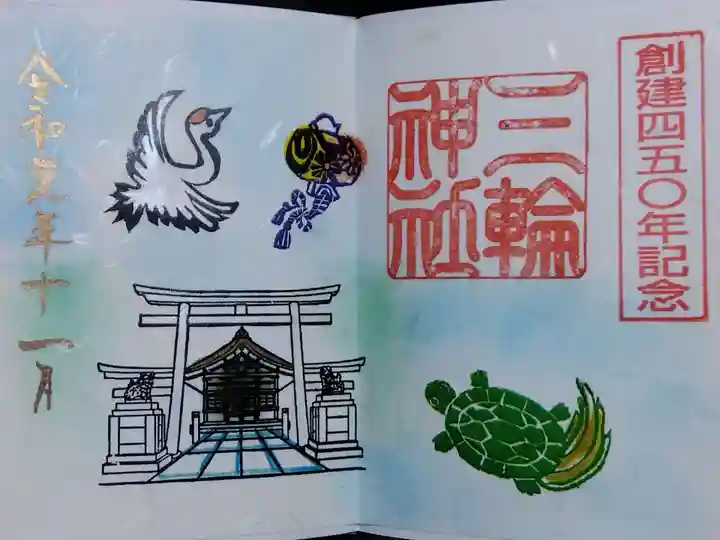 創建四五〇年記念
三輪
神社
令和元年十一月